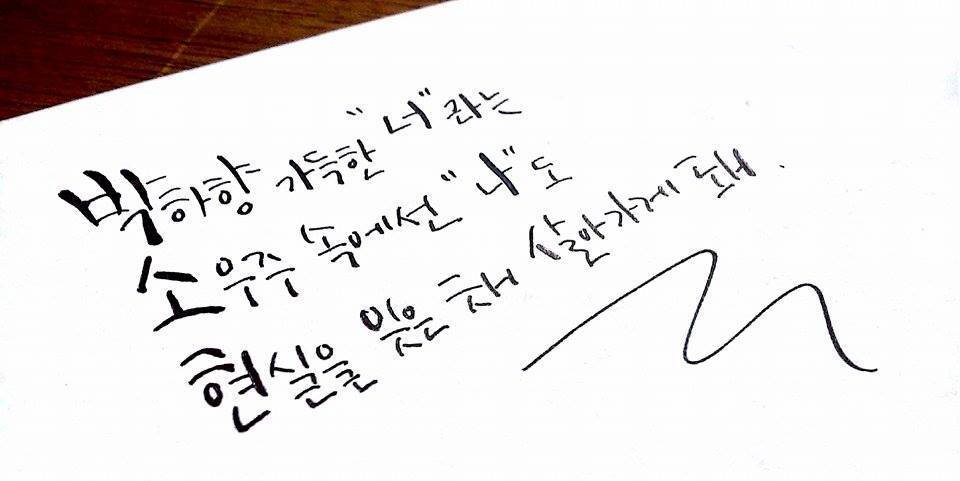 박하향 가득한 "너"라는
소우주 속에선 "나"도
현실을 잊은 채 살아가게 돼.